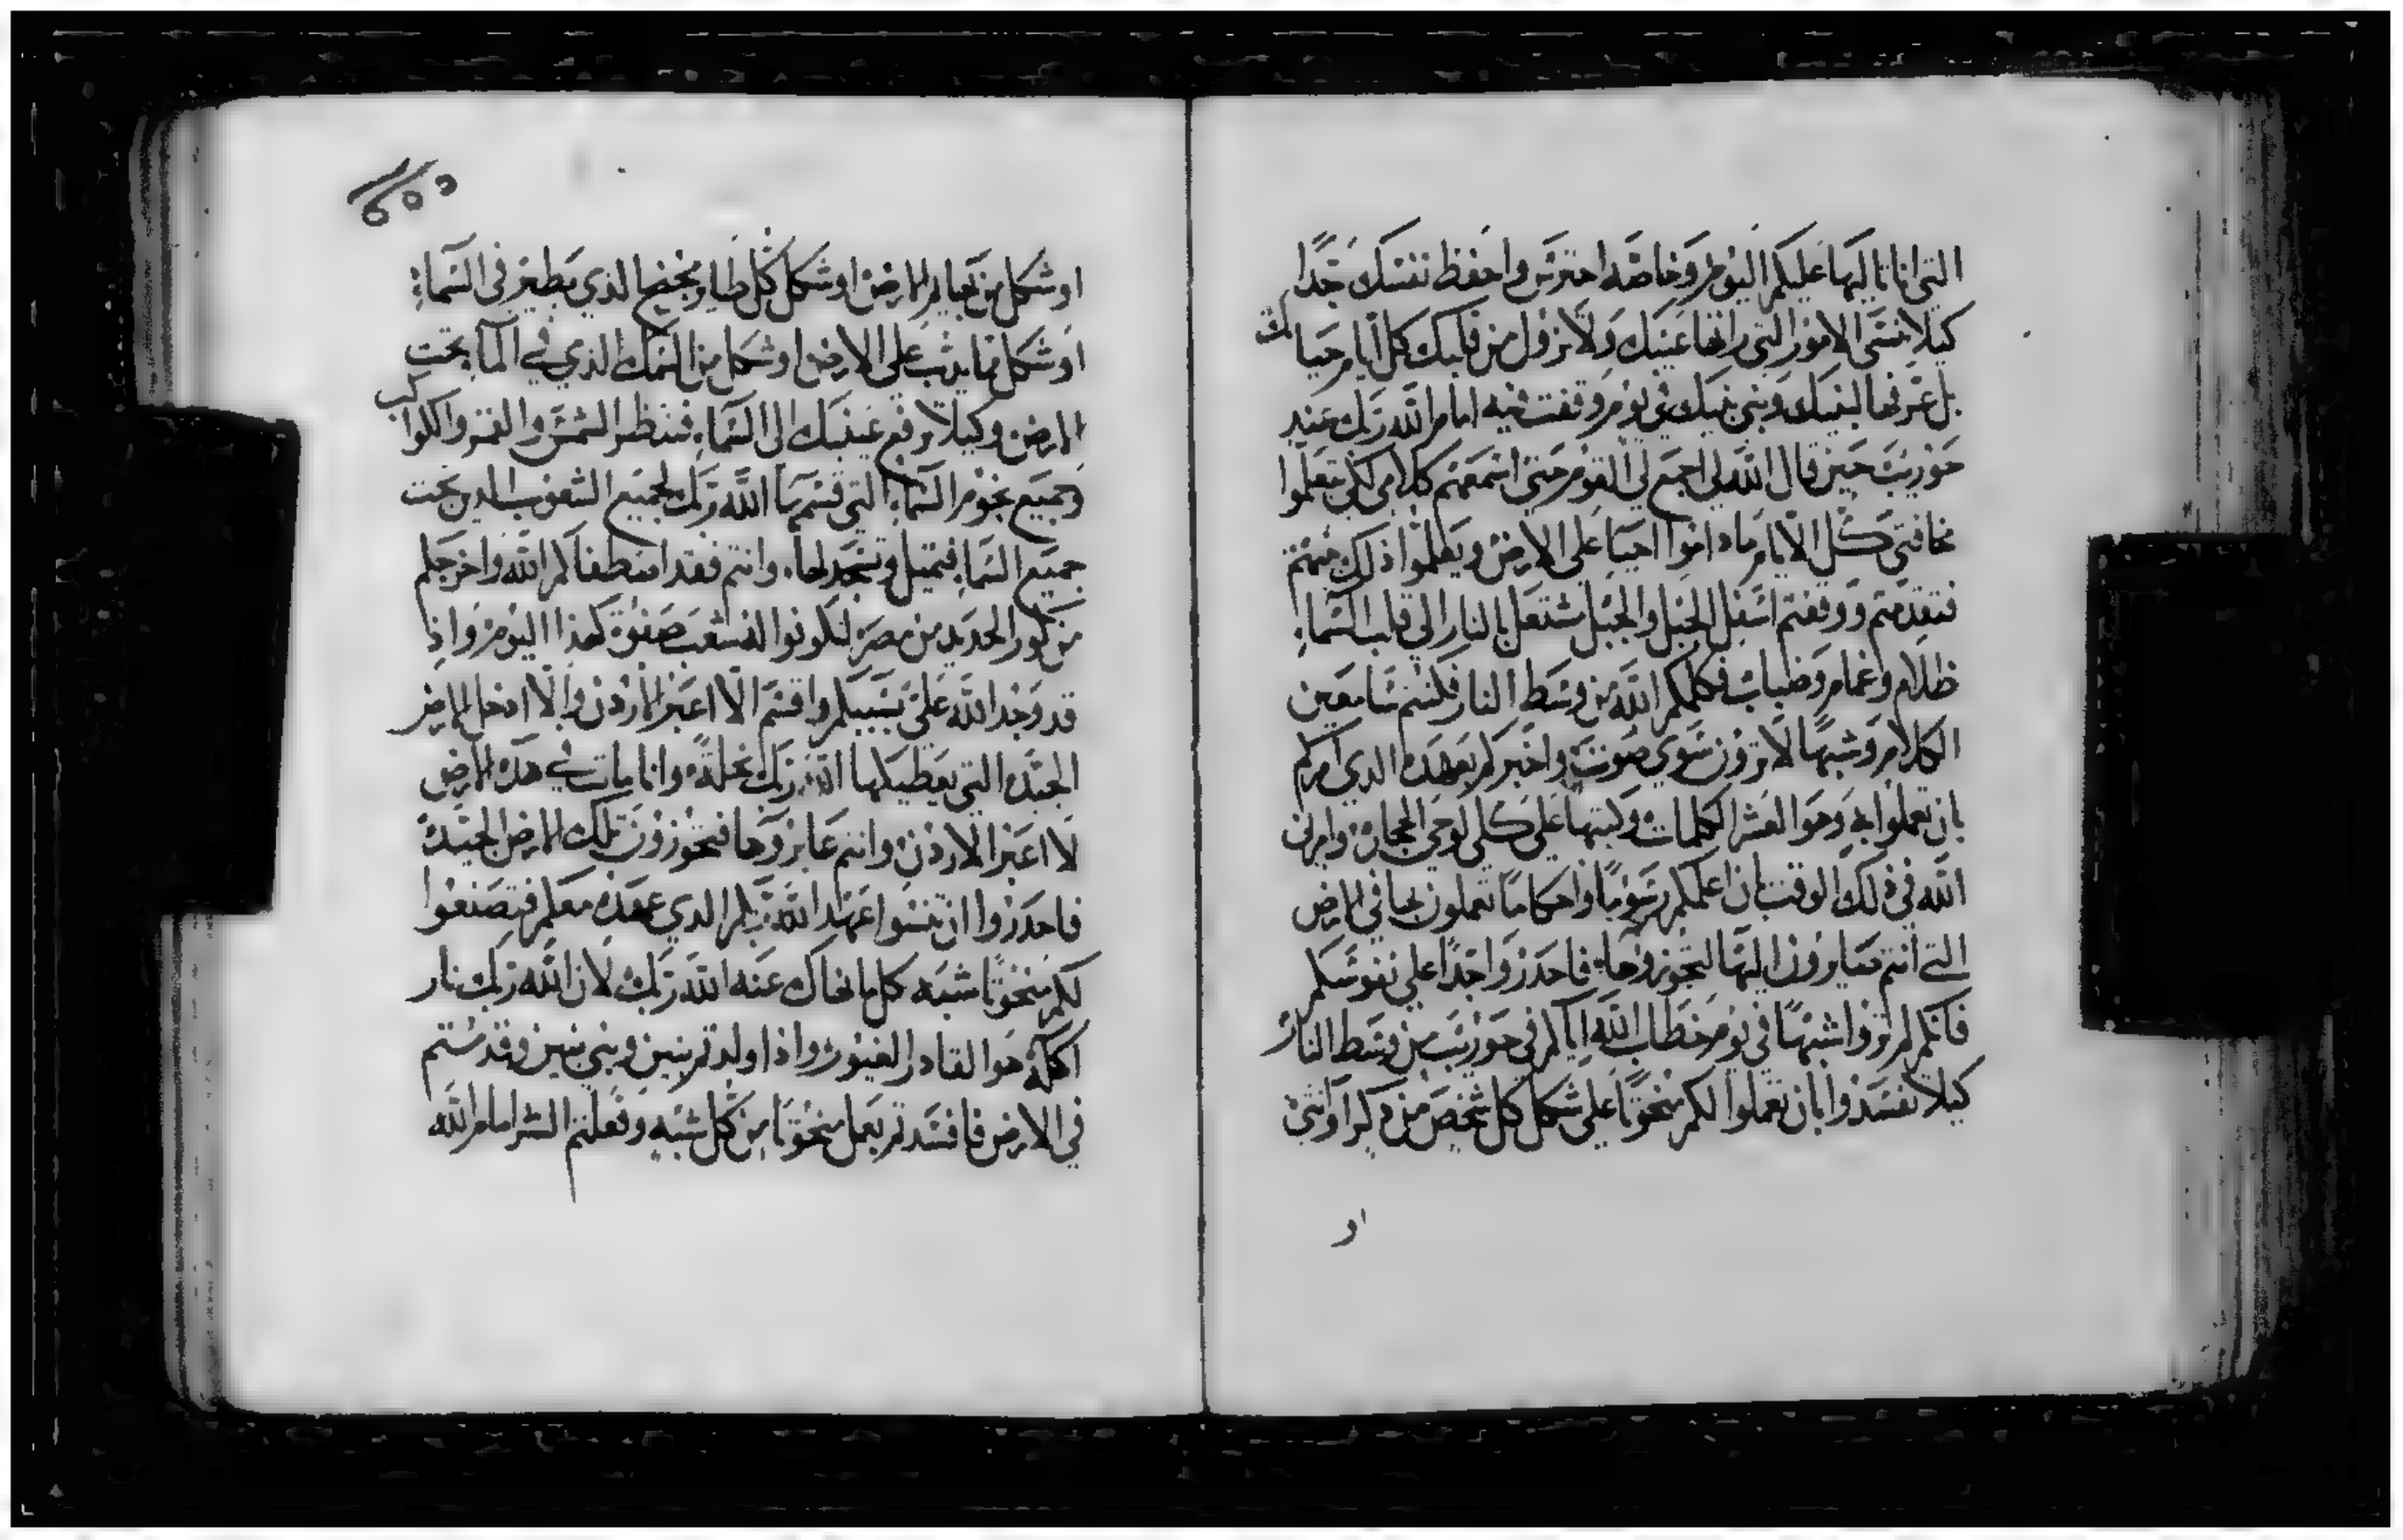 التي انا تاليها عليكم اليوم وخاصه احترس واحفظ نفسك جدا
كيلا تنسى الامور التي راتها عينيك ولا تزول من قلبك كل ايام حياتك
بل عرفها لبنيك وبني بنيك في يوم وقفت فيه امام الله ربك عند
حوريب حين قال الله لي اجمع لي القوم حتى اسمعهم كلامي لكي يتعلموا
مخافتي كل الايام ما داموا احيا على الارض ويعلموا ذلك بنيهم
فتقدمتم ووقفتم اسفل الجبل والجبل مشتعل بالنار الى قلب السماء
ظلام وغمام وضباب فكلمكم الله من وسط النار فكنتم سامعين
الكلام وشبها لا ترون سوي صوت واخبركم بعهده الدي امركم
بان تعملوا به وهوا العشر الكلمات وكتبها على كلى لوحي الحجاره وامرني
الله في ذلك الوقت بان اعلمكم رسوما واحكاما تعملون بها في الارض
التي انتم صايرون اليها لتجوزوها فاحدروا جدا على نفوسكم
فانكم لم تروا شبها في يوم خطاب الله اياكم في حوريب من وسط النار
كيلا تفسدوا بان تعملوا لكم منحوتا على شكل كل شخص من دكر او انثى
او
اوشكل من بهايم الارض اوشكل كل طاير بجناح الذي يطير في السماء
اوشكل مما يدب على الارض اوشكل من السمك الذي في الما تحت
الارض وكيلا ترفع عينيك الى السماء فتنظر الشمس والقمر والكواكب
وجميع نجوم السماء التي قسمها الله ربك لجميع الشعوب الدين تحت
جميع السما فتميل وتسجد لها وانتم فقد اصطفاكم الله واخرجكم
من كور الحديد من مصر لتكونوا له شعب صفوة كهذا اليوم واذ
قد وجد الله على بسببكم واقسم الا اعبر الاردن والا ادخل الارض
الجيده التي يعطيكها الله ربك نحلة وانا مات في هده الارض
لا اعبر الاردن وانتم عابروها فتحوزون تلك الارض الجيدة
فاحدروا ان تنسوا عهد الله ربكم الدي عهده معكم فتصنعوا
لكم منحوتا شبه كل ما نهاك عنه الله ربك لان الله ربك نار
اكلة هوا القادر الغيور واذا اولدتم بنين وبني بنين وقدمتم
في الارض فافسدتم بعمل منحوتا من كل شبه وفعلتم الشر امام الله